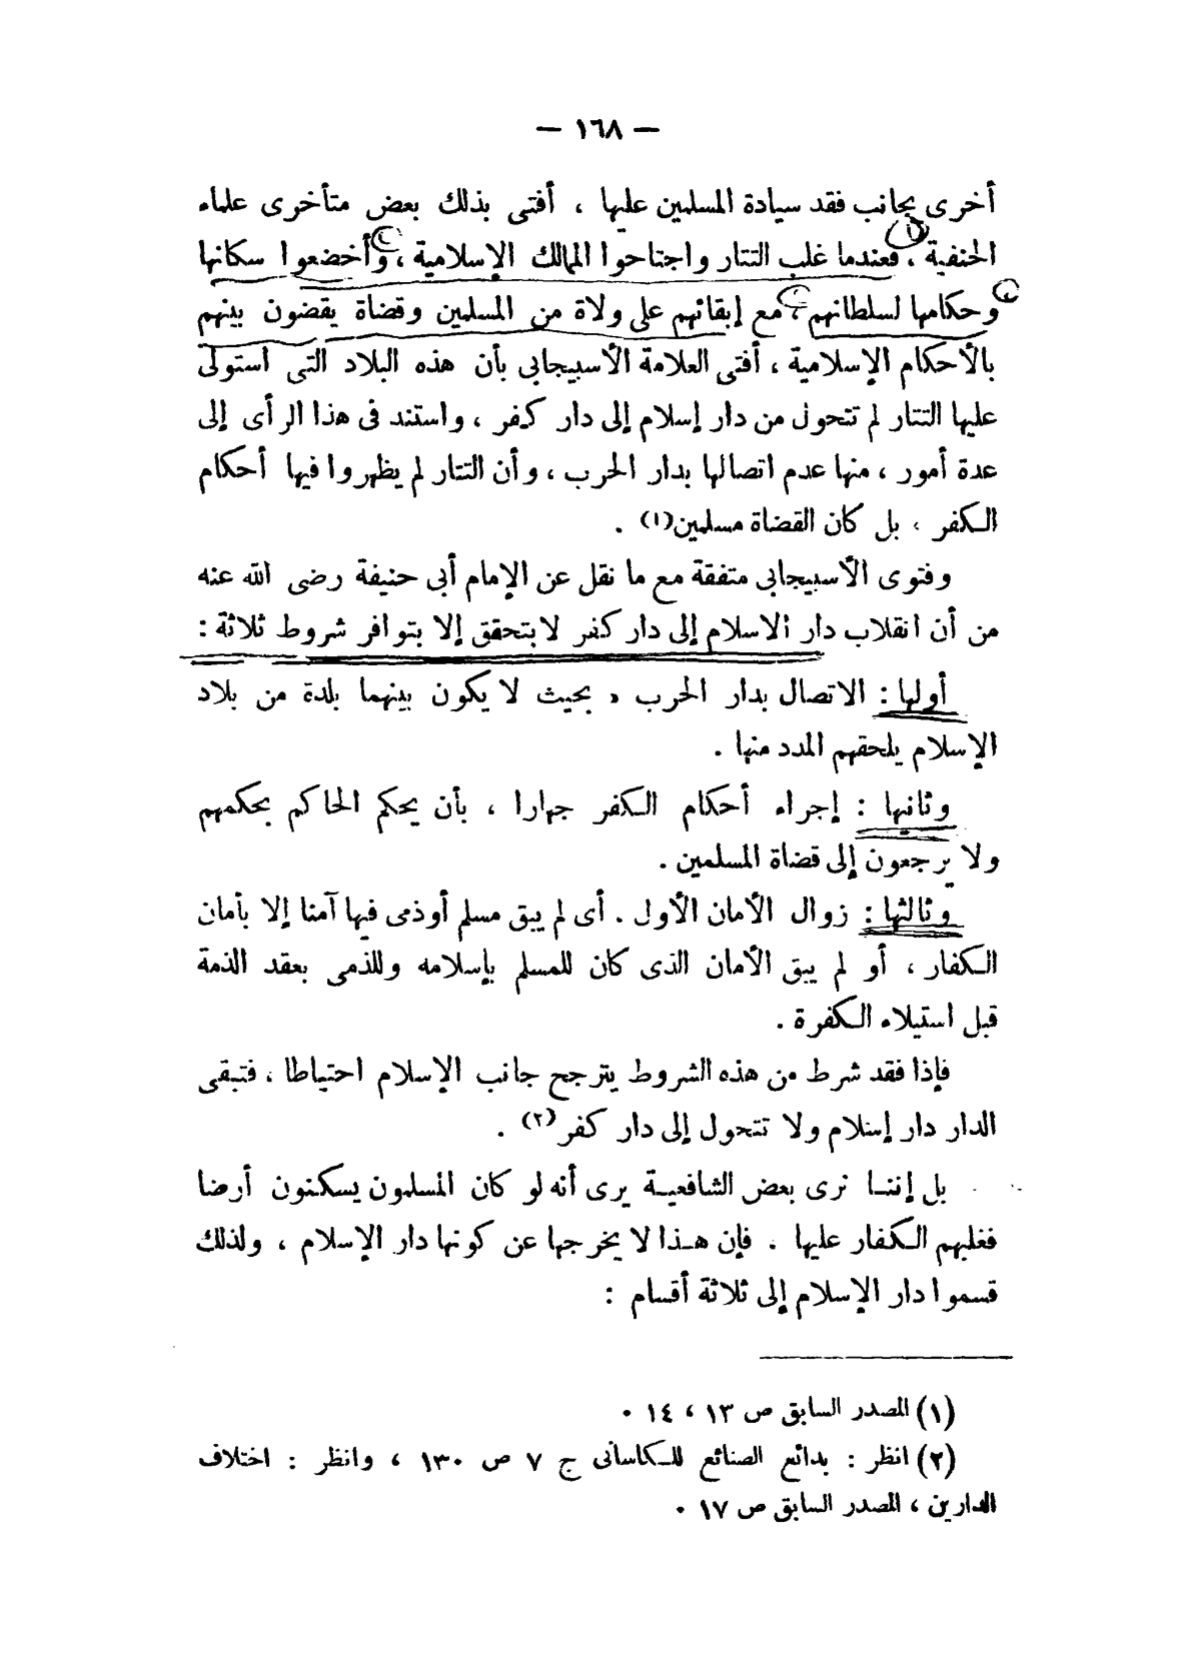 — ١٦٨ —
أخرى بجانب فقد سيادة المسلمين عليها ، أفتى بذلك بعض متأخرى علماء
الحنفية ، فعندما غلب التتار واجتاحوا الممالك الإسلامية ، وأخضعوا سكانها
وحكامها لسلطانهم ، مع إبقائهم على ولاة من المسلمين وقضاة يقضون بينهم
بالأحكام الإسلامية ، أفتى العلامة الأسبيجابى بأن هذه البلاد التى استولى
عليها التتار لم تتحول من دار إسلام إلى دار كفر ، واستند فى هذا الرأى إلى
عدة أمور ، منها عدم اتصالها بدار الحرب ، وأن التتار لم يظهروا فيها أحكام
الكفر ، بل كان القضاة مسلمين(١) .
وفتوى الأسبيجابى متفقة مع ما نقل عن الإمام أبى حنيفة رضى الله عنه
من أن انقلاب دار الاسلام إلى دار كفر لا يتحقق إلا بتوافر شروط ثلاثة :
أولها : الاتصال بدار الحرب ، بحيث لا يكون بينهما بلدة من بلاد
الإسلام يلحقهم المدد منها .
وثانيها : إجراء أحكام الكفر جهارا ، بأن يحكم الحاكم بحكمهم
ولا يرجعون إلى قضاة المسلمين .
وثالثها : زوال الأمان الأول . أى لم يبق مسلم أوذمى فيها آمنا إلا بأمان
الكفار ، أو لم يبق الأمان الذى كان للمسلم بإسلامه وللذمى بعقد الذمة
قبل استيلاء الكفرة .
فإذا فقد شرط من هذه الشروط يترجح جانب الإسلام احتياطا ، فتبقى
الدار دار إسلام ولا تتحول إلى دار كفر(٢) .
بل إننا نرى بعض الشافعية يرى أنه لو كان المسلمون يسكنون أرضا
فغلبهم الكفار عليها . فإن هذا لا يخرجها عن كونها دار الإسلام ، ولذلك
قسموا دار الإسلام إلى ثلاثة أقسام :
(١) المصدر السابق ص ١٣ ، ١٤ .
(٢) انظر : بدائع الصنائع للكاسانى ج ٧ ص ١٣٠ ، وانظر : اختلاف
الدارين ، المصدر السابق ص ١٧ .